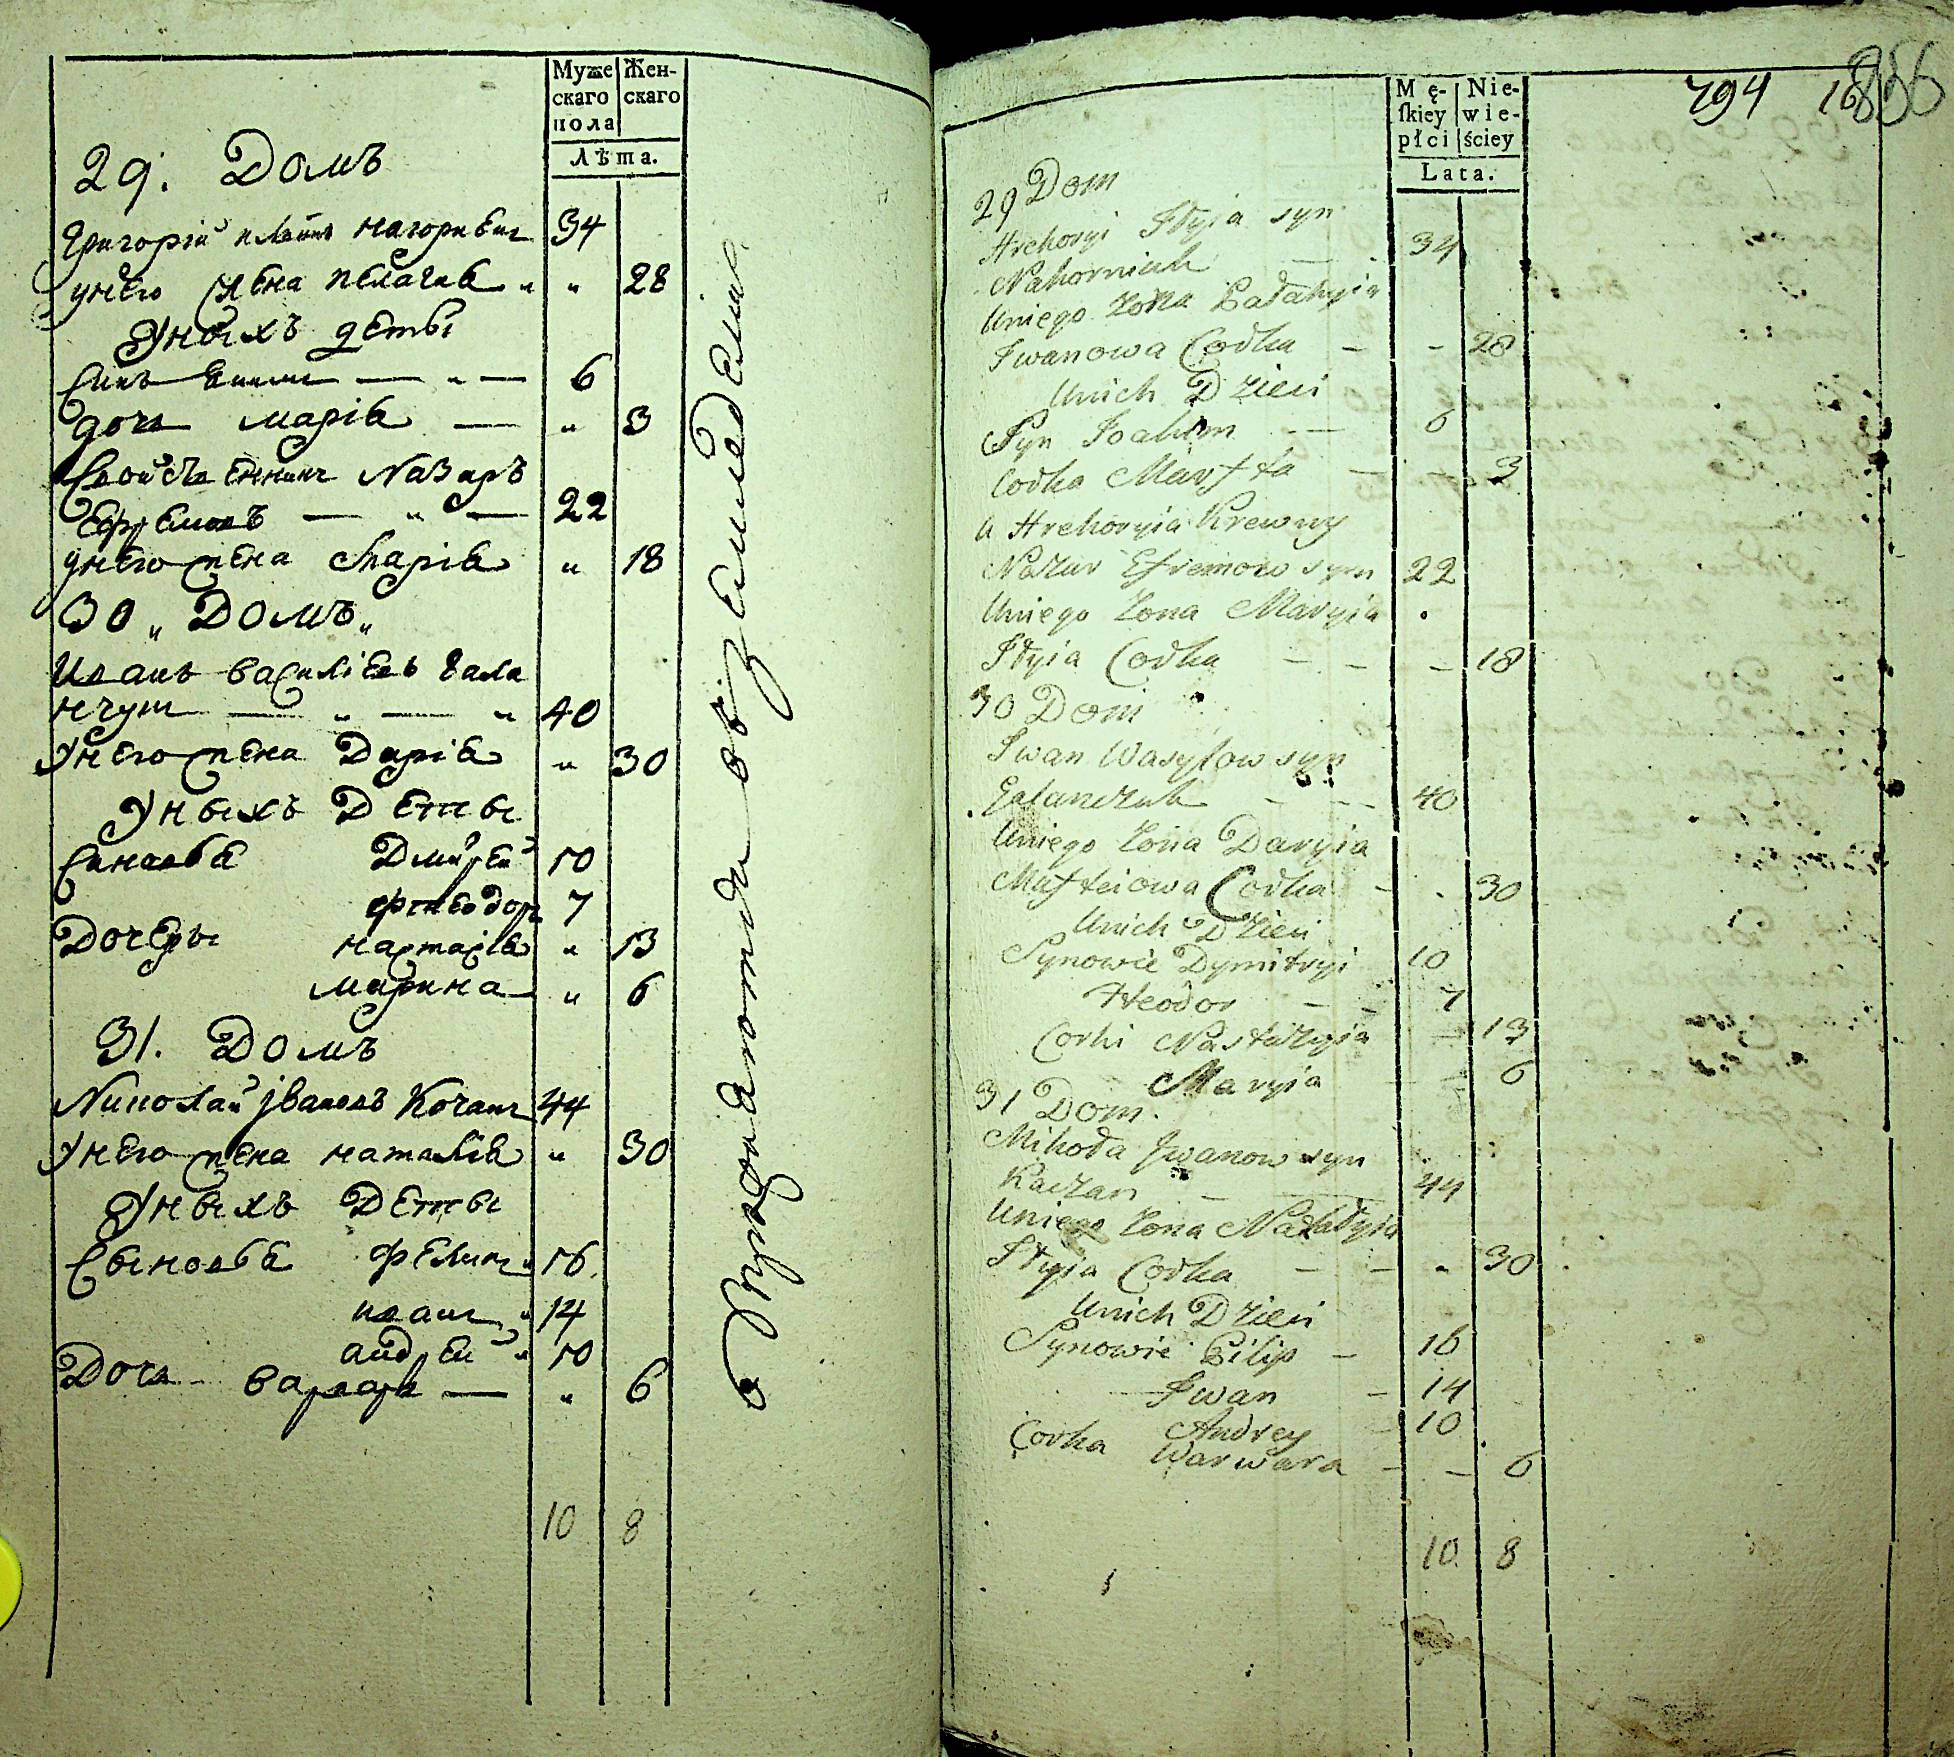 Муже
скаго
пола
Жен-
скаго
Лѣта.
29. Домъ
Григорій Илїинъ Нагорневич 34
унего жена Пелагиѣ " " 28
Уныхъ дѣты
Синъ Еким — " — 6
дочь Маріѣ — " 3
Свойственникъ Назаръ
Ефремовъ — " — 22
унего жена Маріѣ " 18
30 " Домъ "
Иванъ Василіевъ Гала
нчук — " — " 40
Унего жена Даріѣ " 30
Уныхъ Дети
Синовѣ Дмитрей 10
Фтеодоръ 7
Дочеры Настасіѣ " 13
Марина " 6
31. Домъ
Николай Івановъ Кочанъ 44
Унего жена Наталіѣ " 30
Уныхъ Дети
Сыновѣ Филип " 16
Иванъ " 14
Андрей " 10
Дочь Варвара — " 6
10 8
Mę-
ſkiey
płci
Nie-
wie-
ściey
Lata.
794
29 Dom
Hrehoryi Jłyia syn
Nahorniuk — 34
Uniego Żona Pałahyia
Jwanowa Codka — - 28
Unich Dzieci
Syn Joahim — — 6
Codka Marfta — - 3
U Hrehoryia Krewny
Nazar Efremow syn 22
Uniego Żona Maryia .
Jłyia Codka — — — 18
30 Dom
Jwan Wasyłow syn
Gałanczuk - - - 40
Uniego Żona Daryia
Mafteiowa Codka - . 30
Unich Dzieci
Synowie Dymitryi 10
Fteodor — — 7
Corki Nastazyia — 13
Maryia 6
31 Dom.
Mikoła Jwanow syn
Kaczan — 44
Uniego Żona Natałyia
Jłyia Codka — — . 30
Unich Dzieci
Synowie Pilip — 16
Jwan - 14
Andrey - 10
Corka Warwara — — 6
10 8